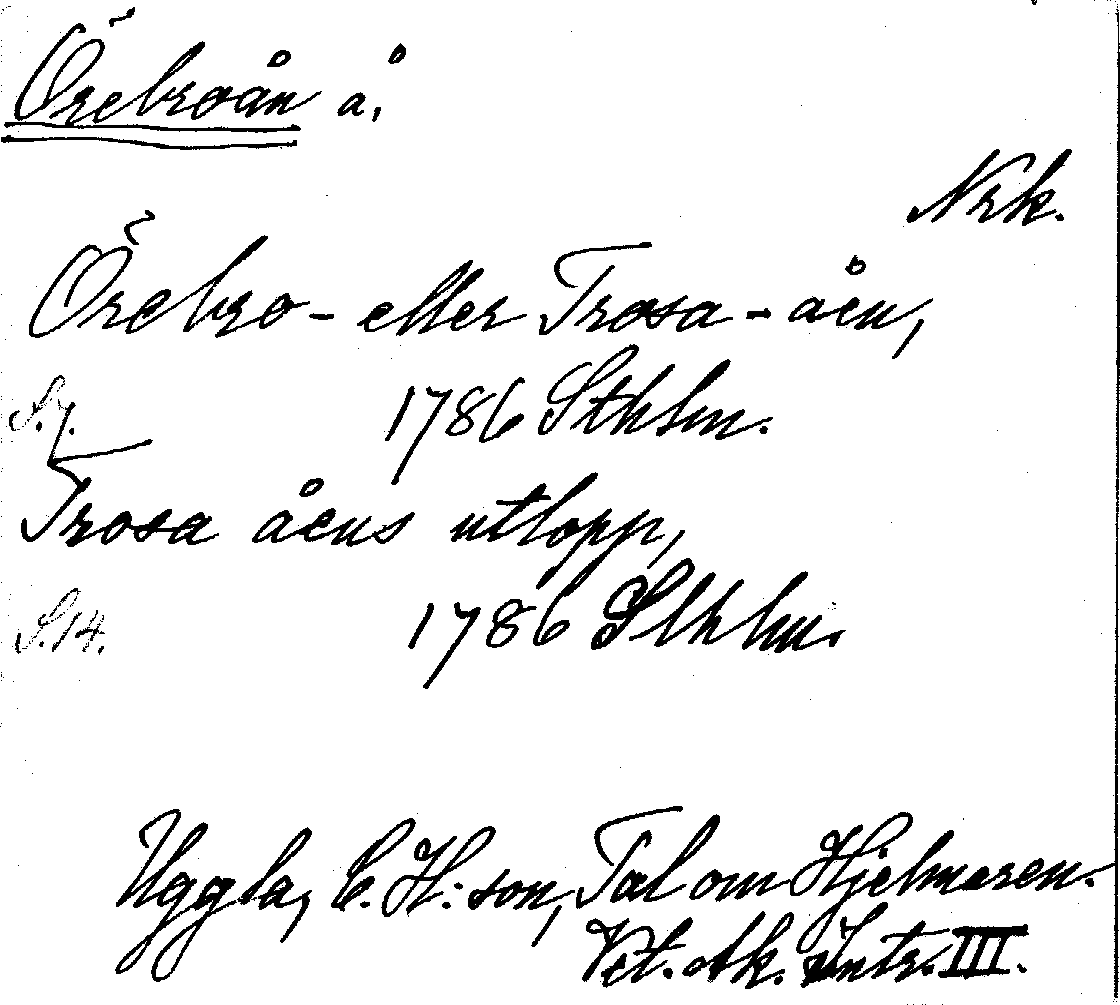 Örebroån å,
Nrk.
Örebro- eller Trosa-åen,
S.7. 1786 Sthlm.
Trosa åens utlopp,
S.14. 1786 Sthlm.
Uggla, C. H:son, Tal om Hjelmaren.
Vet. Ak. Intr. III.